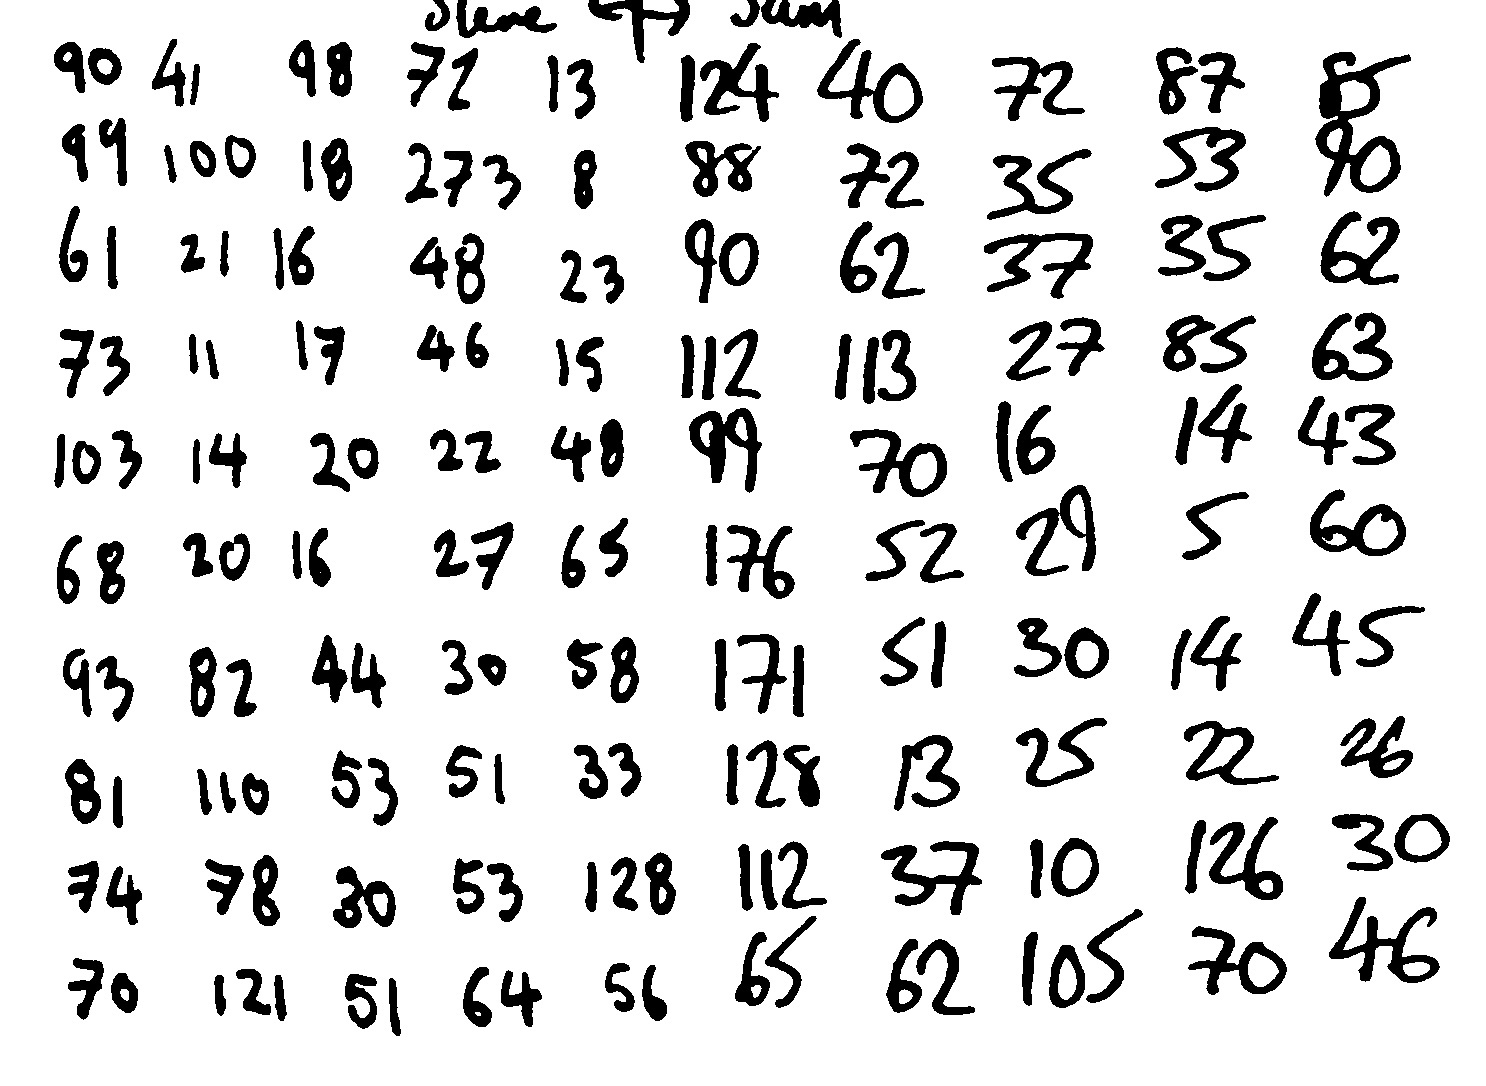 Steve ↔ Sam
90 41 98 72 13 124 40 72 87 85
99 100 18 273 8 88 72 35 53 90
61 21 16 48 23 90 62 37 35 62
73 11 17 46 15 112 113 27 85 63
103 14 20 22 48 99 70 16 14 43
68 20 16 27 65 176 52 29 5 60
93 82 44 30 58 171 51 30 14 45
81 110 53 51 33 128 13 25 22 26
74 78 30 53 128 112 37 10 126 30
70 121 51 64 56 65 62 105 70 46